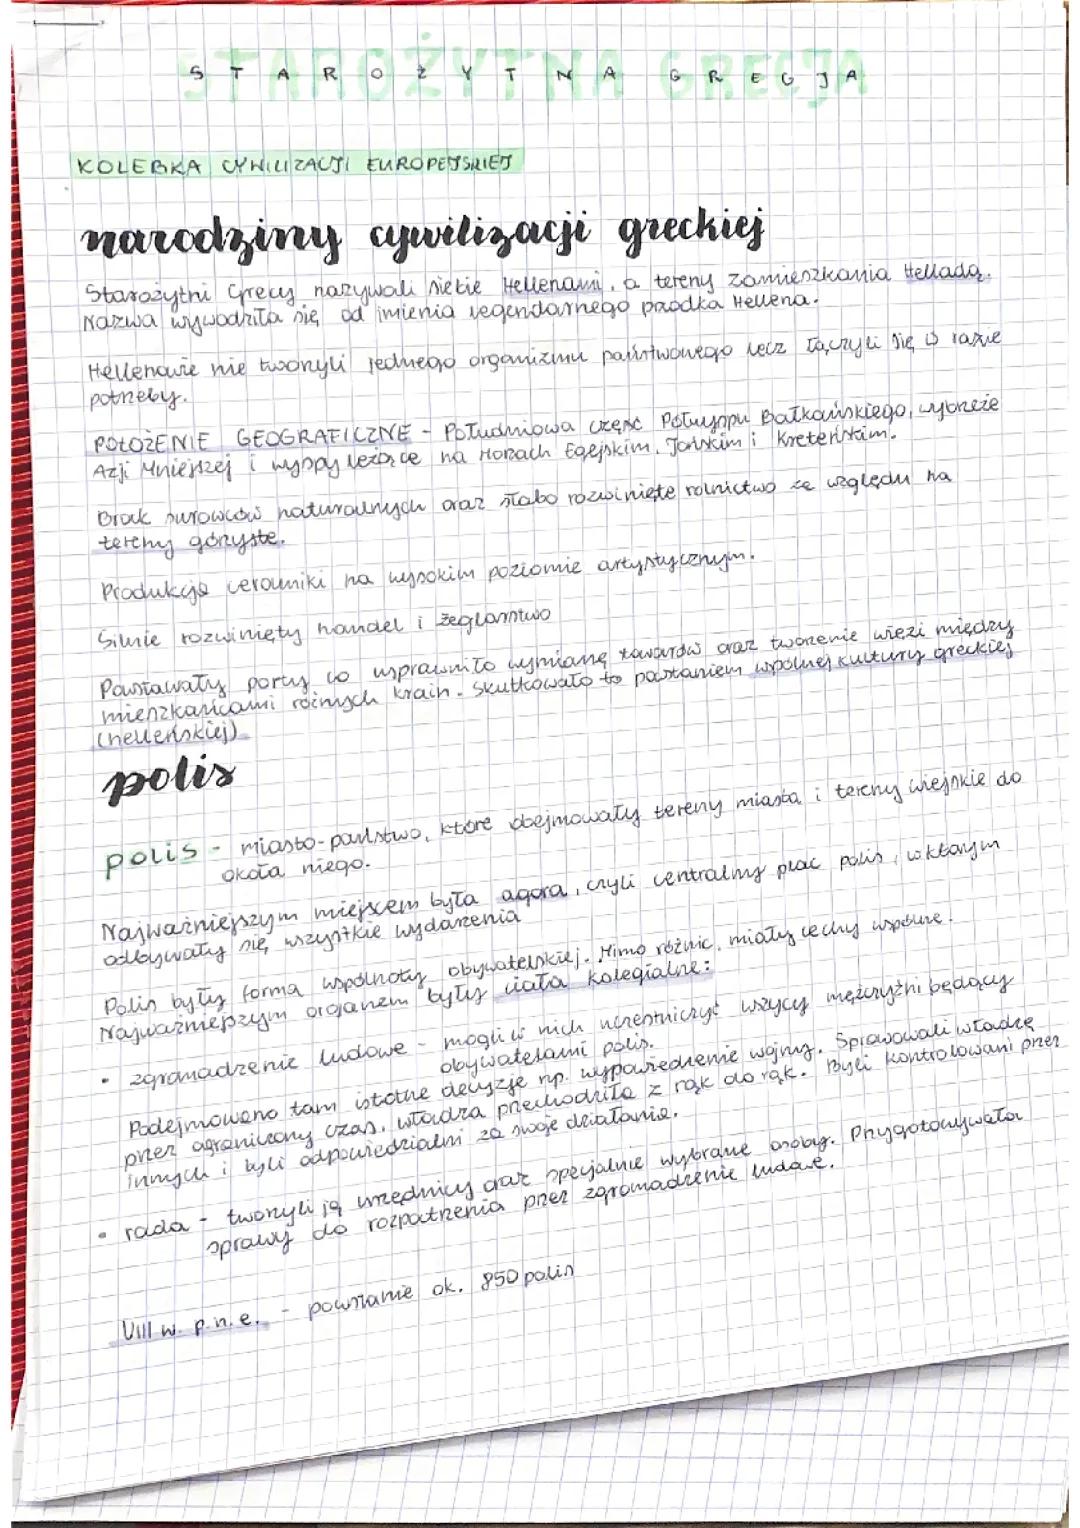 STAROŻYTNA GRECJA
KOLEBKA CYWILIZACJI EUROPEJSKIEJ
narodziny cywilizacji greckiej
Starożytni Grecy nazywali siebie Hellenami, a tereny zamieszkania Helladą.
Nazwa wywodziła się od imienia legendarnego praodka Hellena.
Hellenowie nie tworzyli jednego organizmu państwowego lecz łączyli się w razie
potrzeby.
POŁOŻENIE GEOGRAFICZNE - Południowa część Półwyspu Bałkańskiego, wybrzeże
Azji Mniejszej i wyspy leżące na Morzach Egejskim, Jońskim i Kreteńskim.
Brak surowców naturalnych oraz słabo rozwinięte rolnictwo ze względu na
tereny górzyste.
Produkcja ceramiki na wysokim poziomie artystycznym.
Silnie rozwinięty handel i żeglarstwo
Powstawały porty co usprawniło wymianę towarów oraz tworzenie więzi między
mieszkańcami różnych krain. Skutkowało to powstaniem wspólnej kultury greckiej
(helleńskiej)
polis
polis - miasto-państwo, które obejmowały tereny miasta i tereny wiejskie do
okoła niego.
Najważniejszym miejscem była agora, czyli centralny plac polis, w którym
odbywały się wszystkie wydarzenia
Polis były formą wspólnoty obywatelskiej. Mimo różnic, miały cechy wspólne.
Najważniejszym organem były ciała kolegialne:
• zgromadzenie ludowe - mogli w nich uczestniczyć wszycy mężczyźni będący
obywatelami polis.
Podejmowano tam istotne decyzje np. wypowiedzenie wojny. Sprawowali władzę
przez ograniczony czas, władza przechodziła z rąk do rąk. Byli kontrolowani przez
innych i byli odpowiedzialni za swoje działania.
• rada - tworzyli ją urzędnicy oraz specjalnie wybrane osoby. Przygotowywała
sprawy do rozpatrzenia przez zgromadzenie ludowe.
VIII w. p.n.e. - powstanie ok. 850 polis